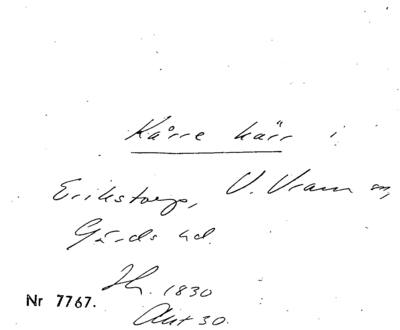 Kårre kärr i
Erikstorp, V. Vram sn,
Gärds hd.
1830
Akt 30.
Nr 7767.